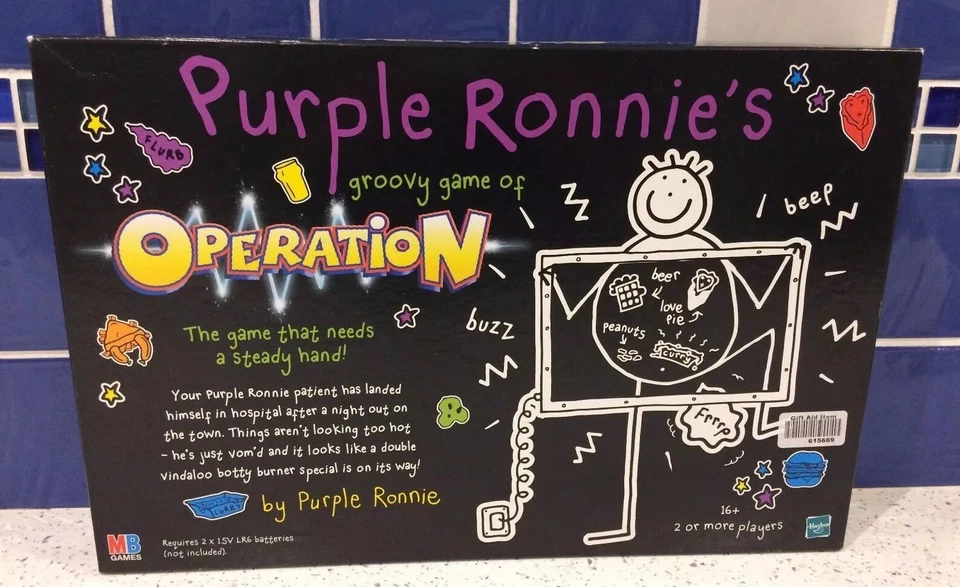 Purple Ronnie's
FLURB
groovy game of
OPERATION
beep
buzz
beer
love
pie
peanuts
curry
Frrrp
The game that needs
a steady hand!
Your Purple Ronnie patient has landed
himself in hospital after a night out on
the town. Things aren't looking too hot
- he's just vom'd and it looks like a double
vindaloo botty burner special is on its way!
CURRY
by Purple Ronnie
Gift Aid Item
615669
16+
2 or more players
Hasbro
MB
GAMES
Requires 2 x 1.5V LR6 batteries
(not included).